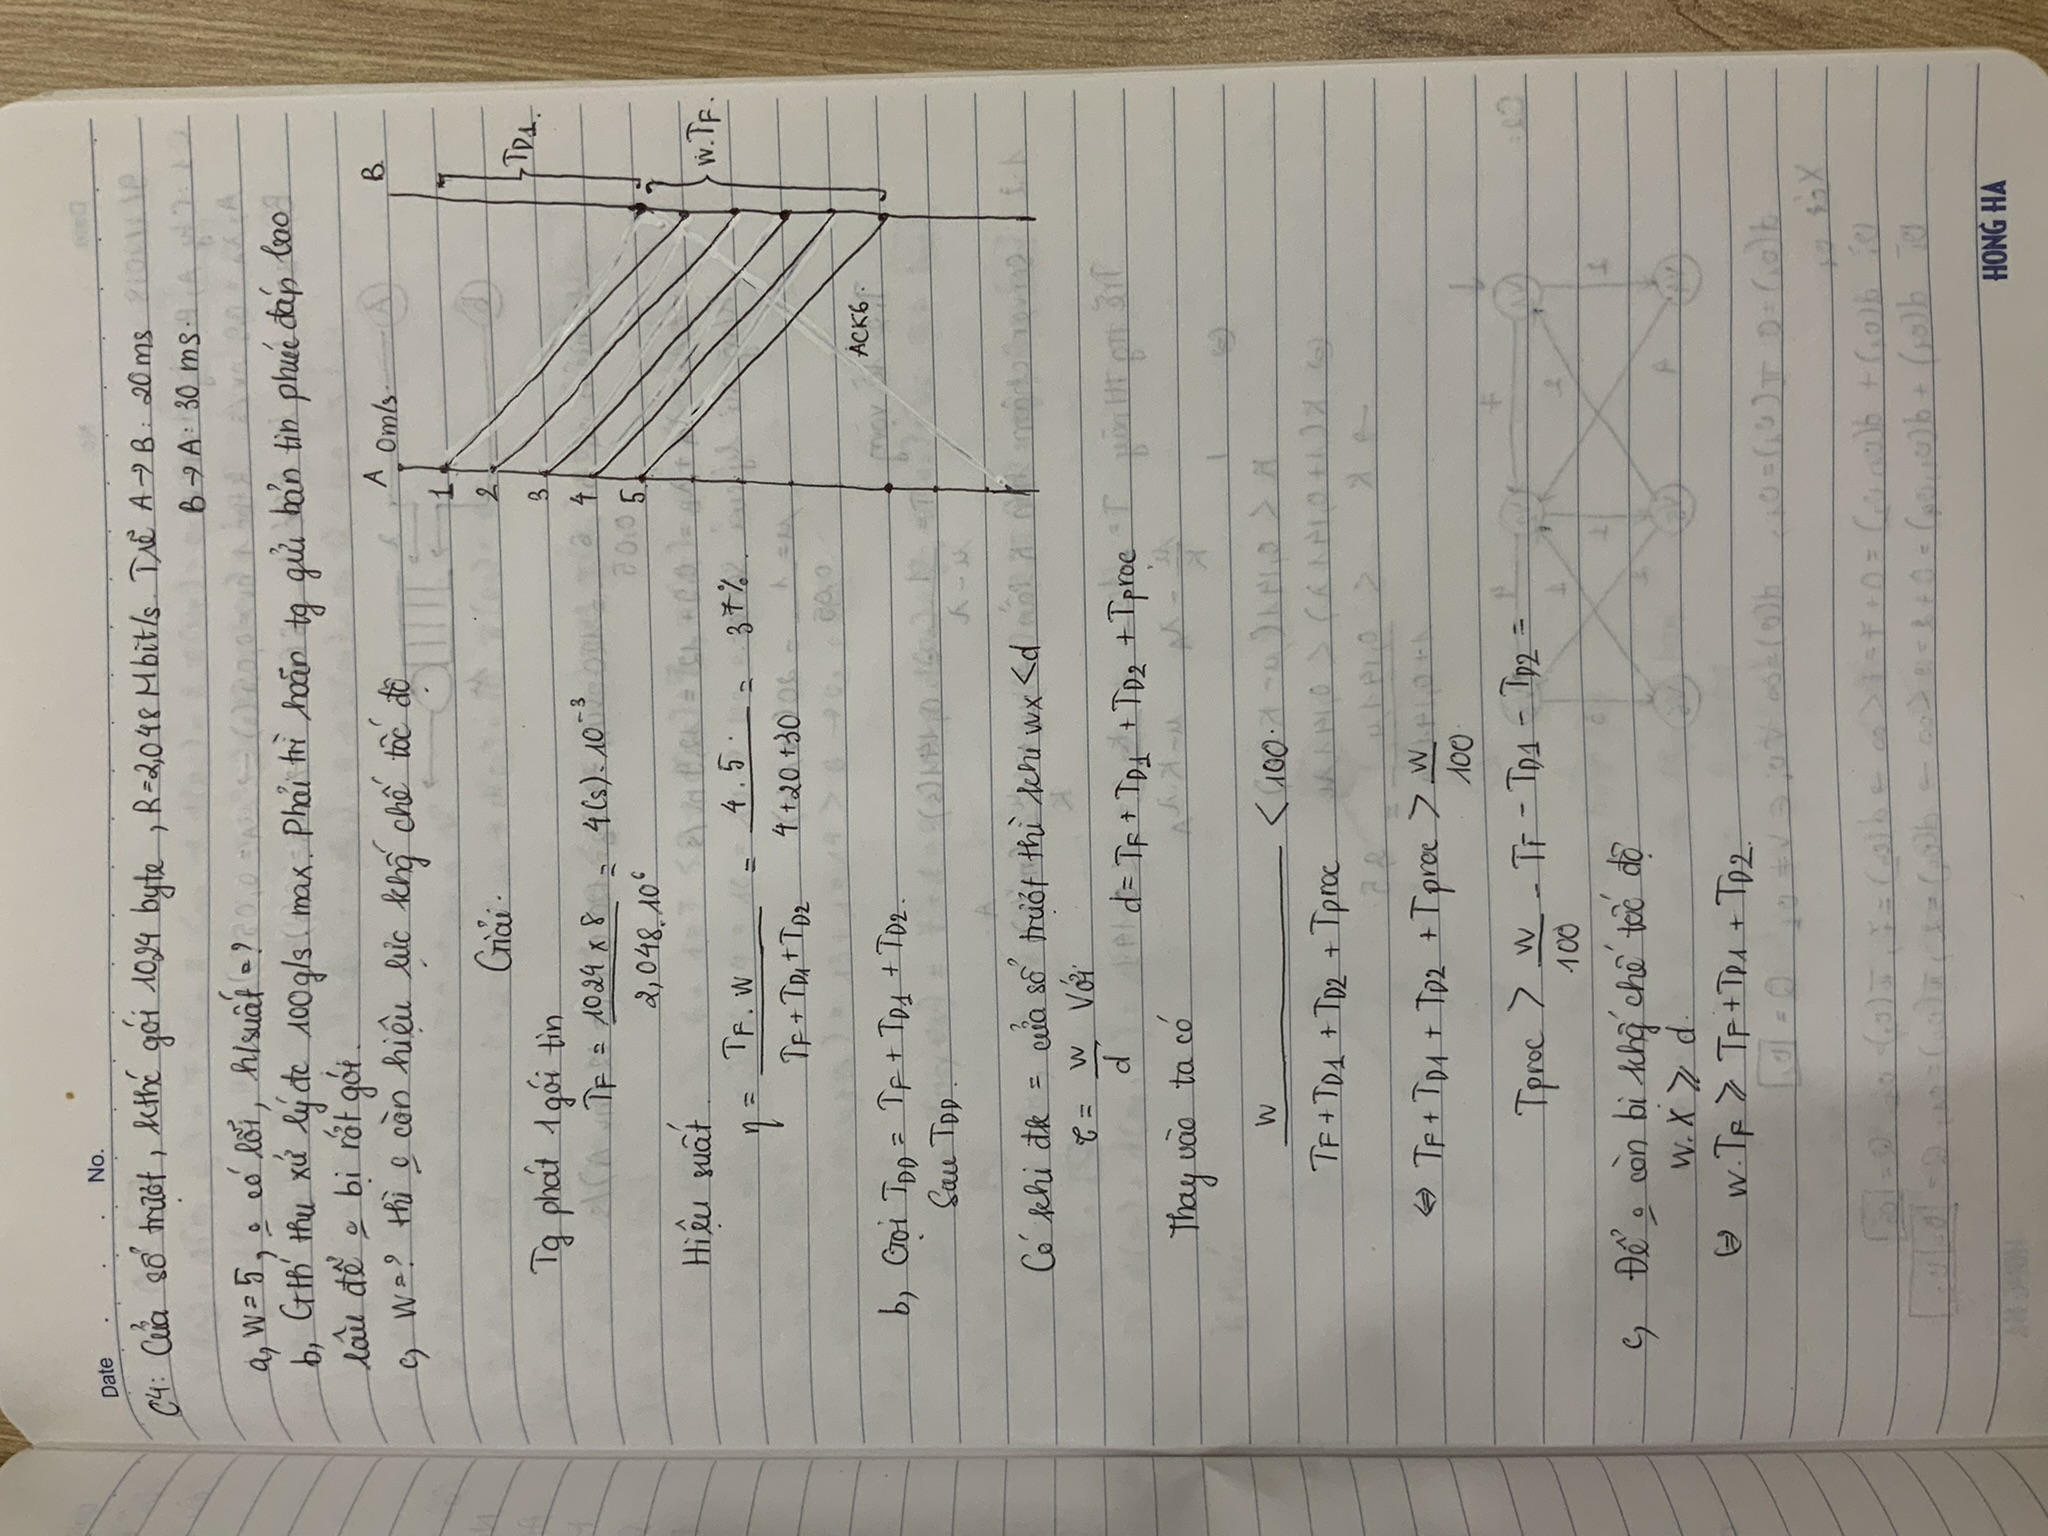 Date . . . No.
C4: Cửa sổ trượt, kthc gói 1024 byte, R=2,048 Mbit/s. Trễ A→B: 20 ms
B→A: 30 ms.
a, W=5, o có lỗi, h/suất=?
b, Gth thu xử lý đc 100g/s max. Phải trì hoãn tg gửi bản tin phúc đáp bao
lâu để o bị rớt gói.
c, W=? thì o còn hiệu lực khố chế tốc độ
Giải.
Tg phát 1 gói tin
TF = 1024 x 8 / 2,048.10⁶ = 4(s).10⁻³
Hiệu suất
η = TF.W / TF+TD1+TD2 = 4.5. / 4+20+30 = 37%.
A 0m/s. B.
1
2
3
4
5
TD1.
W.TF.
ACK6.
b, Gọi TDD = TF + TD1 + TD2.
Sau TDD.
Có khi đk = cửa sổ trượt thì khi wx<d
τ = w/d Với
d= TF + TD1 + TD2 + Tproc
Thay vào ta có
W / TF + TD1 + TD2 + Tproc < 100.
⇔ TF + TD1 + TD2 + Tproc > W/100
Tproc > W/100 - TF - TD1 - TD2 =
c, Để o còn bị khố chế tốc độ
W.X ⩾ d.
⇔ W.TF ⩾ TF + TD1 + TD2.
HONG HA